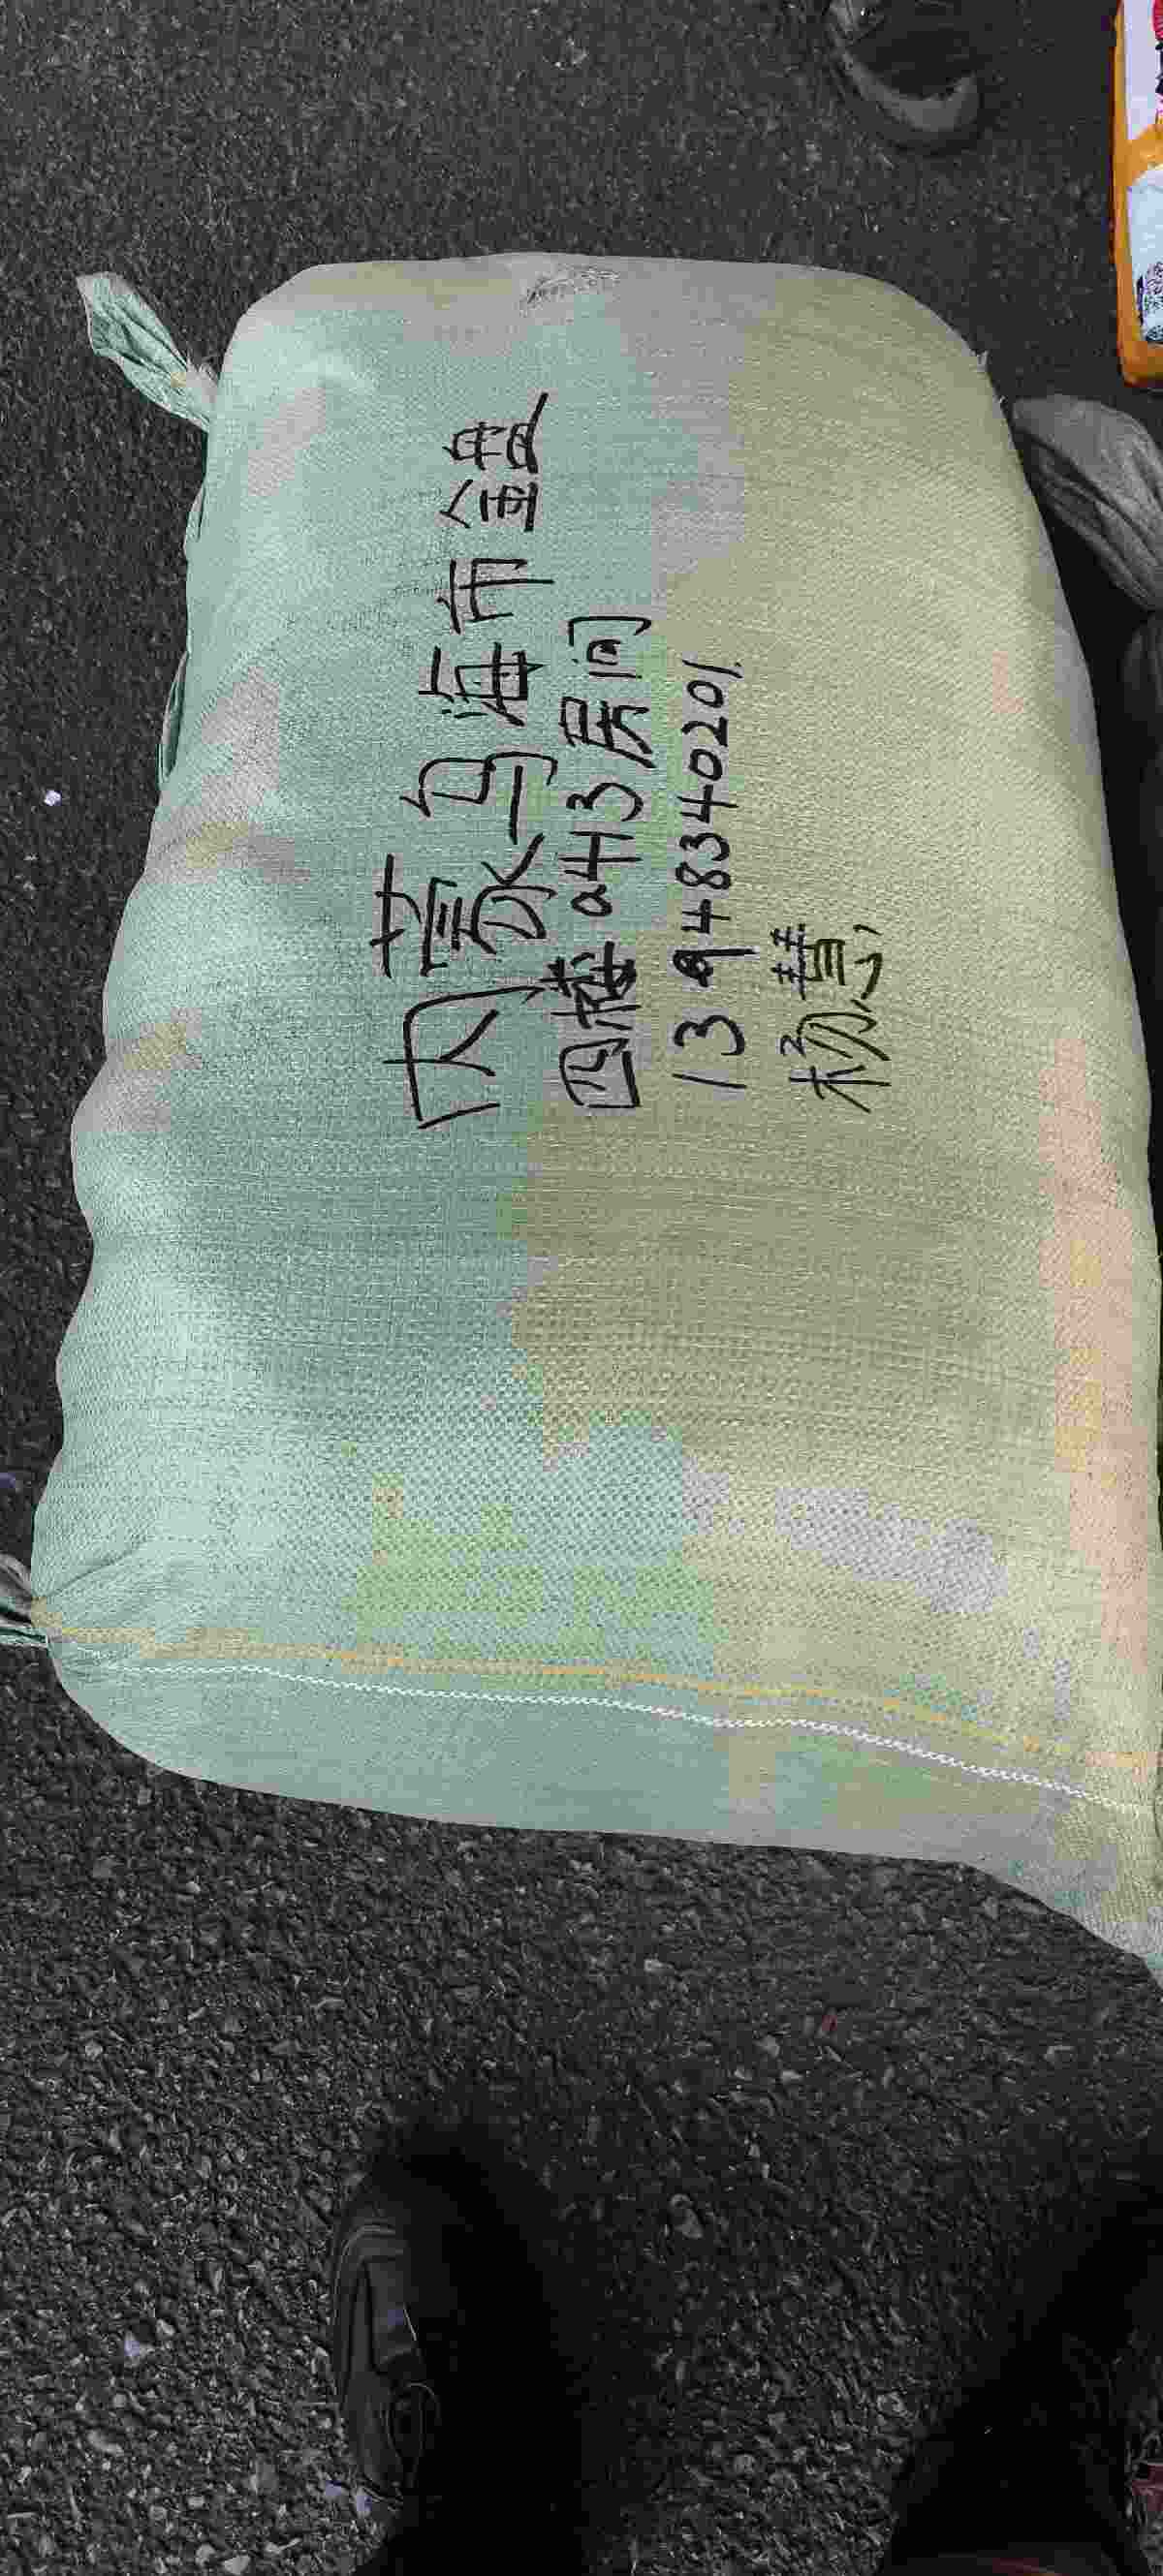 内蒙乌海市金盘
四楼a4H3房间
13948340201
杨慧